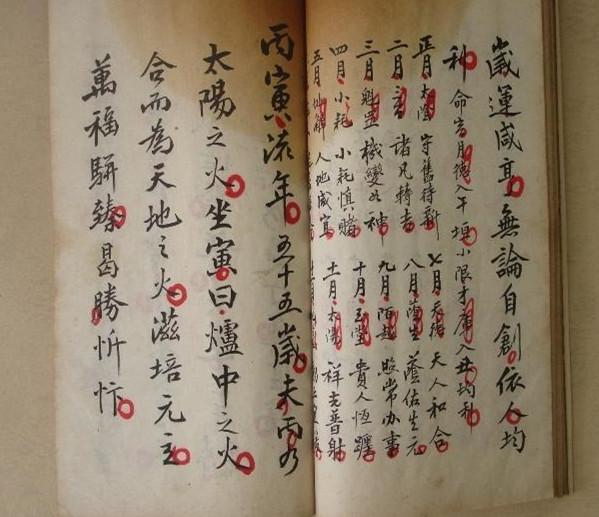 歲運咸亨無論自創依人均
利命宮月德入午垣小限才庫入丑均利
正月太陰守舊待新 七月天德天人和合
二月 諸凡轉吉 八月 蔭佑生元
三月魁罡機變如神 九月陌越照常办事
四月小耗小耗慎賭 十月玉堂貴人恆躔
五月 人地咸宜 十一月太陽祥光普射
丙寅流年五十五歲夫丙乃
太陽之火坐寅曰爐中之火
合而為天地之火滋培元立
萬福駢臻曷勝忻忭